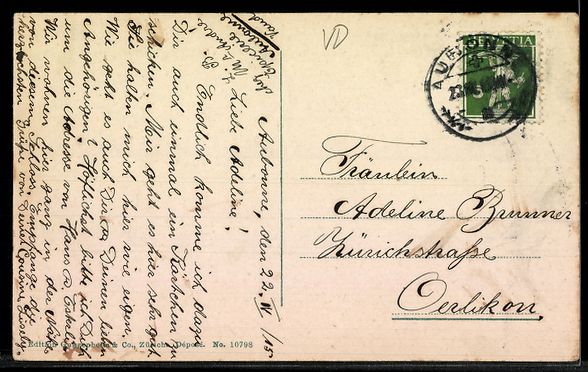 Aubonne, den 22. IV /15
Liebe Adeline!
Endlich komme ich dazu
Dir auch einmal ein Kärtchen zu
schicken. Mir geht es hier sehr gut
Sie halten mich hier wie eigen.
Wie geht es auch Dir u. Deinen lieben
Angehörigen? Höflichst bitte ich Dich
um die Adresse von Hans
Wir wohnen hier ganz in der Nähe
von diesem Schloss. Empfange die
herzlichsten Grüße von Deiner Cousine
Aubonne
Vaud
VD
AUBONNE
HELVETIA
Fräulein
Adeline Brunner
Zürichstraße
Oerlikon.
Edition Guggenheim & Co., Zürich. Déposé. No. 10798